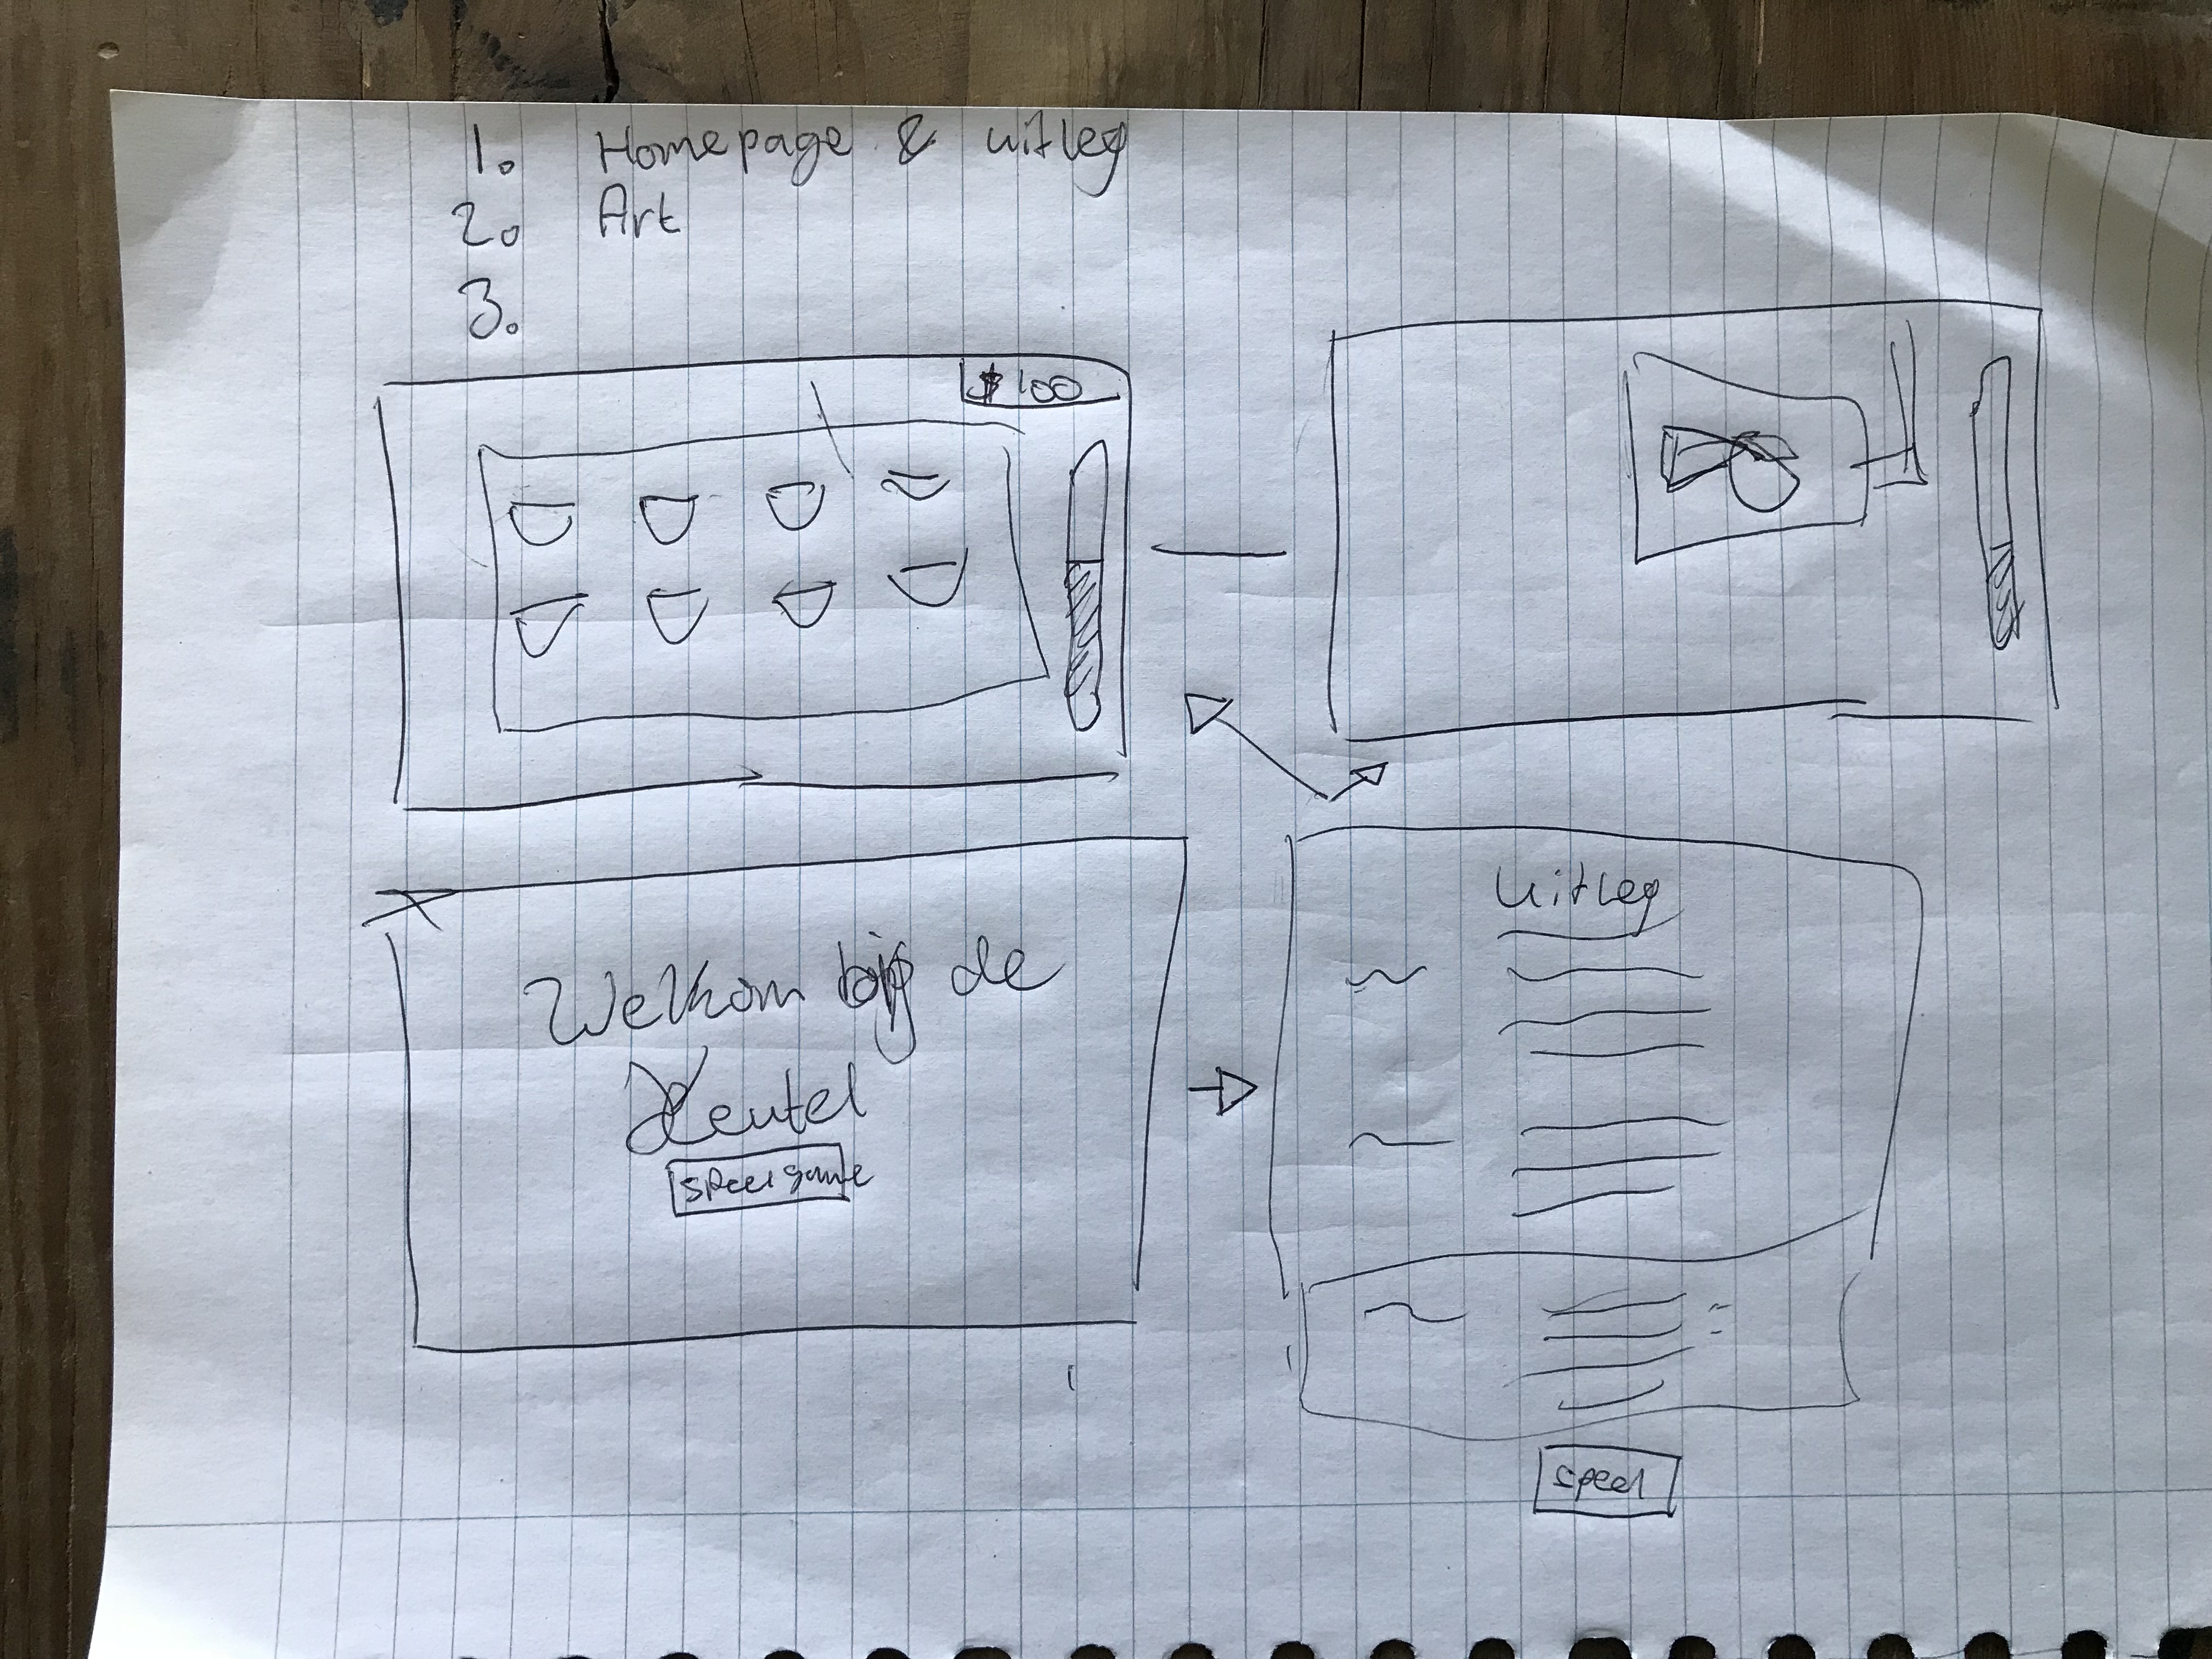 1. Homepage & uitleg
2. Art
3.
$100
Welkom bij de
Keutel
speel game
uitleg
speel